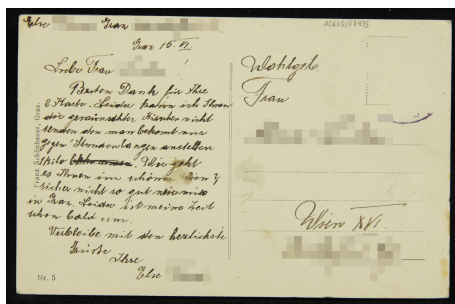 Else Graz
Graz 15. VI.
Liebe Frau
Besten Dank für Ihre
Karte. Leider kann ich Ihnen
die gewünschten nicht
senden den man bekomt nur
gegen Stundenlanges anstellen
Kilo. Wie geht
es Ihnen im schönen Wien?
sicher nicht so gut wie mir
in Graz. Leider ist meine Zeit
schon bald um.
Verbleibe mit den herzlichste
Grüße
Ihre
Else
Nr. 5
Franz Schönhauser, Graz.
Wohlgeb.
Frau
Wien XVI.